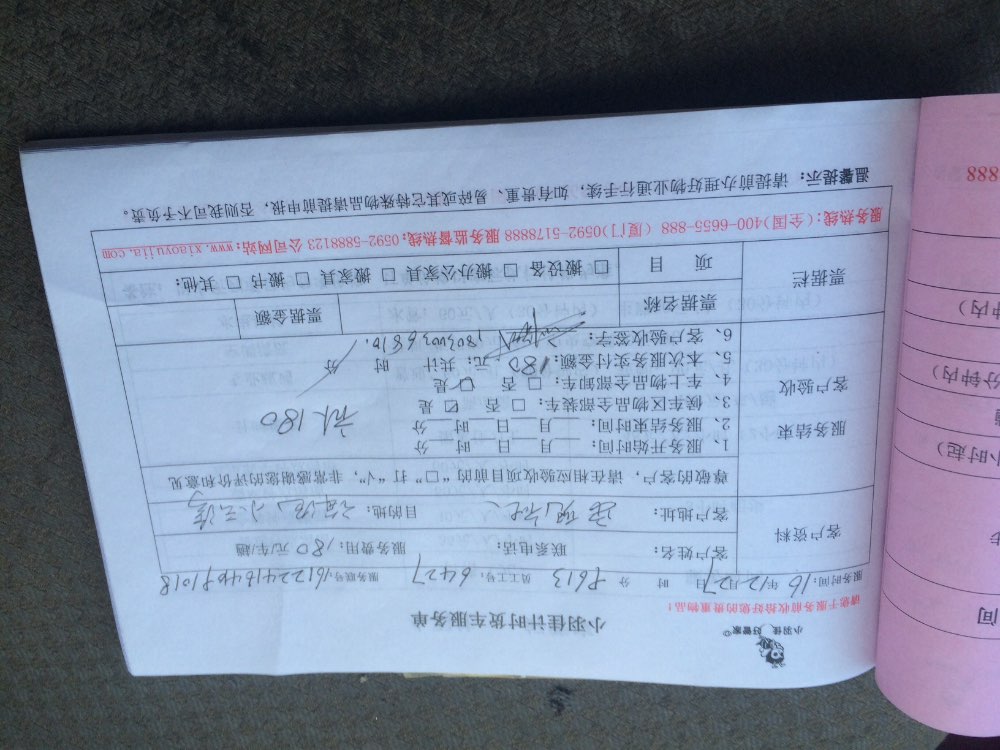 小羽佳 好管家
小羽佳计时货车服务单
请您于服务前收拾好您的贵重物品！
服务时间：16年12月27日 时 分 P613 员工工号：6427 服务联号：
客户资料
客户姓名： 联系电话： 服务费用：180元车/趟
客户地址： 目的地：
尊敬的客户，请在相应验收项目前的“□”打“√”，非常感谢您的评价和意见
服务结束
客户验收
1、服务开始时间： 月 日 时 分
2、服务结束时间： 月 日 时 分
3、候车区物品全部装车：□ 否 ☑ 是
4、车上物品全部卸车：□ 否 ☑ 是
5、本次服务实付金额：180元；共计 时 分
6、客户验收签字：
180
票据栏
票据名称 票据金额
项 目 □ 搬设备 □ 搬办公家具 □ 搬家具 □ 搬书 □ 其他：
服务热线：(全国)400-6655-888 (厦门)0592-5178888 服务监督热线：0592-5888123 公司网站：www.xiaoyujia.com
温馨提示：请提前办理好物业通行手续，如有贵重、易碎或其它特殊物品请提前申报，否则我司不予负责。
间
小时起）
分钟内）
钟内）
888